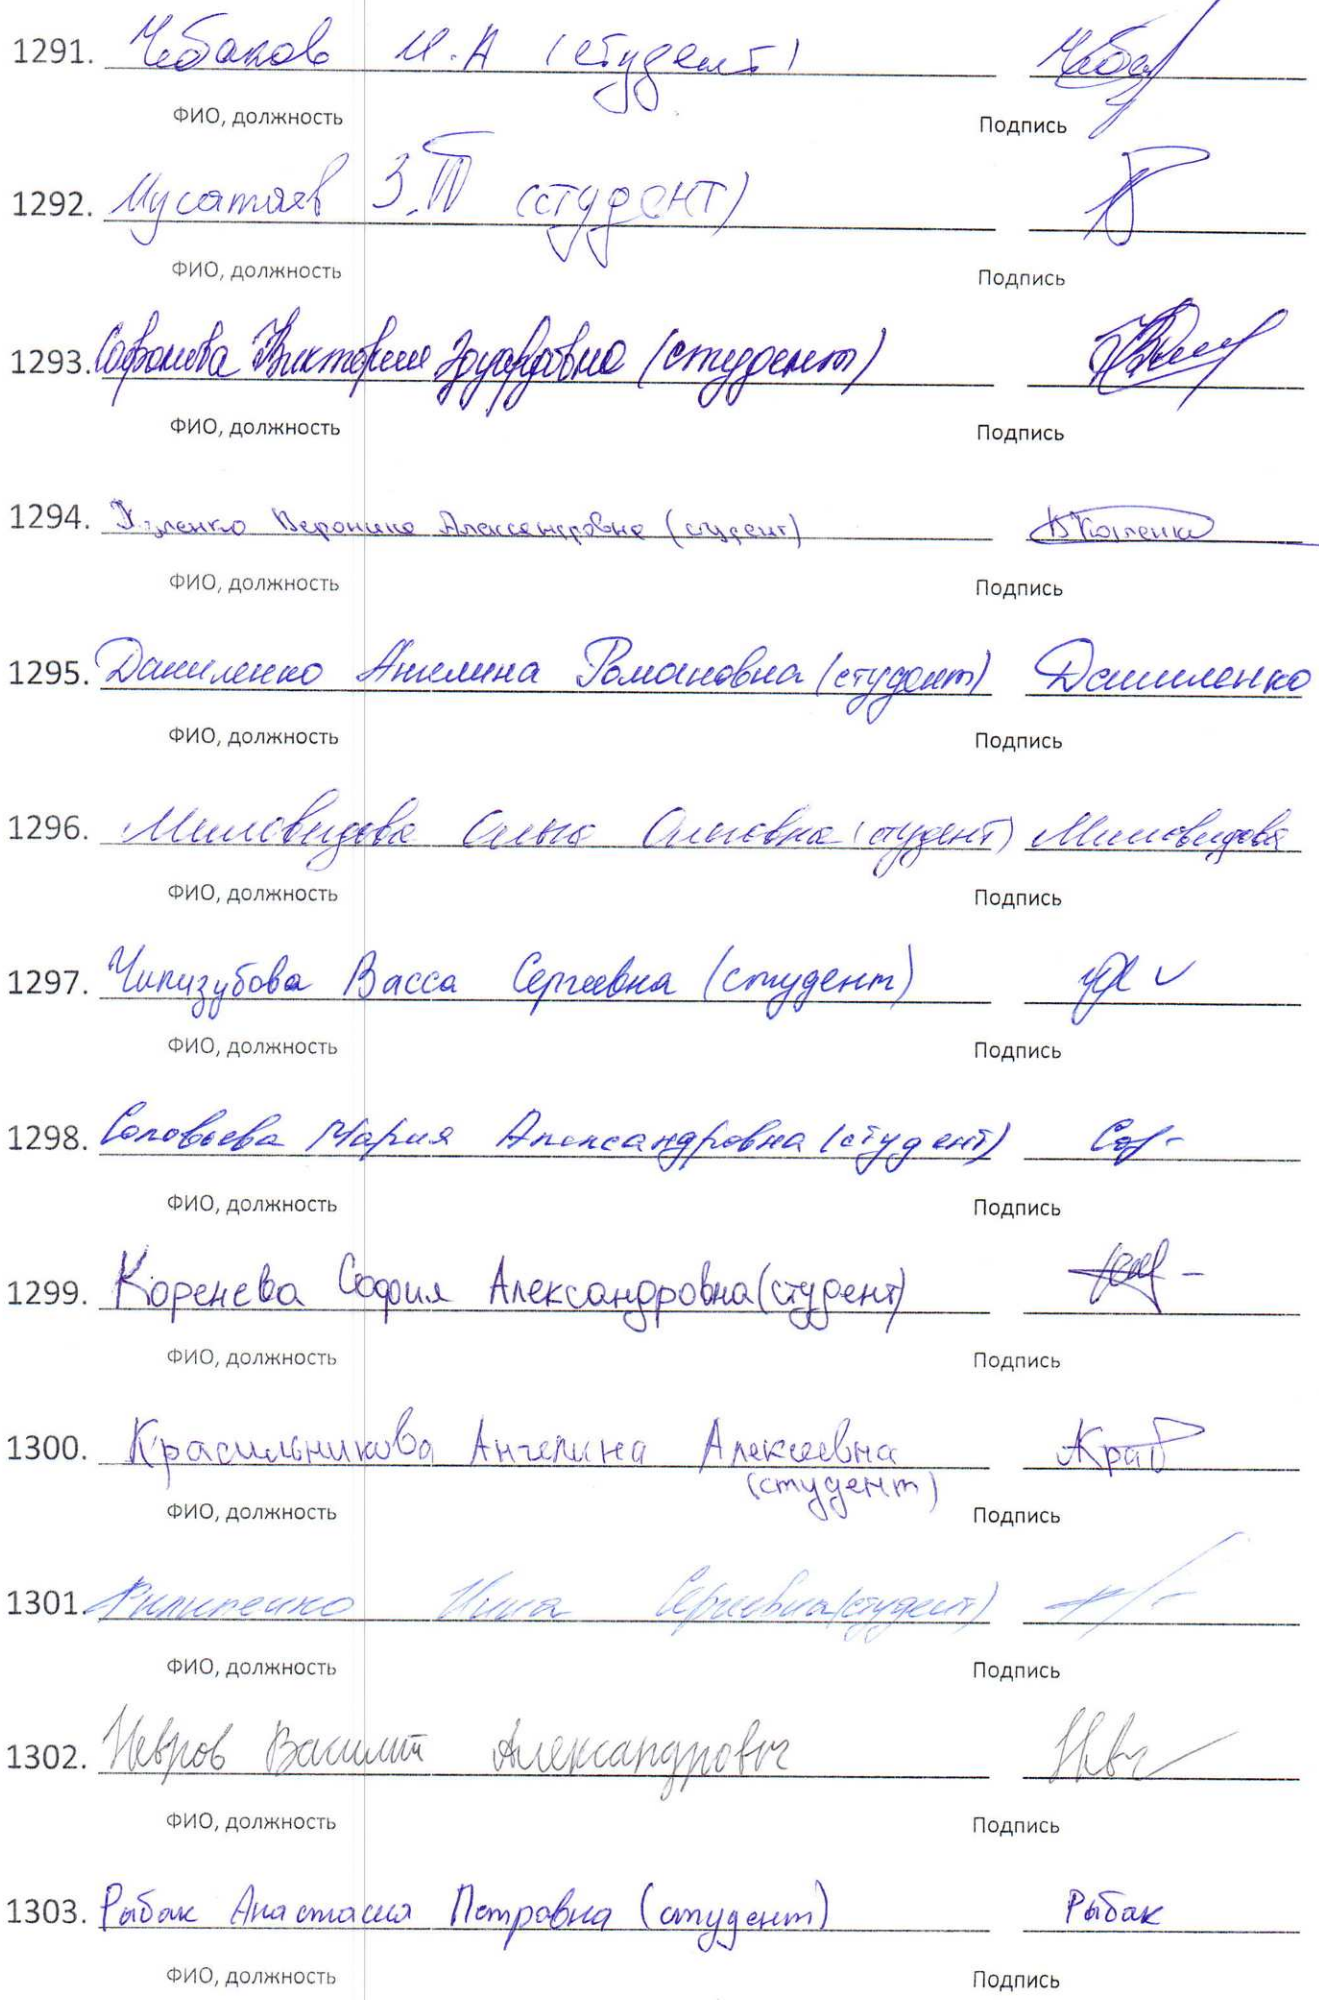 1291. Чебаков И.А (студент) Чеба
ФИО, должность Подпись
1292. Мусатаев З.Т (студент)
ФИО, должность Подпись
1293. Сафонова Виктория Эдуардовна (студент)
ФИО, должность Подпись
1294. Вероника Александровна (студент)
ФИО, должность Подпись
1295. Даниленко Ангелина Романовна (студент) Даниленко
ФИО, должность Подпись
1296. Миловидова Ольга Олеговна (студент) Миловидова
ФИО, должность Подпись
1297. Чипизубова Васса Сергеевна (студент)
ФИО, должность Подпись
1298. Соловьева Мария Александровна (студент)
ФИО, должность Подпись
1299. Коренева София Александровна (студент)
ФИО, должность Подпись
1300. Красильникова Ангелина Алексеевна
(студент)
ФИО, должность Подпись
1301. Филипенко Нина Сергеевна (студент)
ФИО, должность Подпись
1302. Невров Василий Александрович
ФИО, должность Подпись
1303. Рыбак Анастасия Петровна (студент) Рыбак
ФИО, должность Подпись